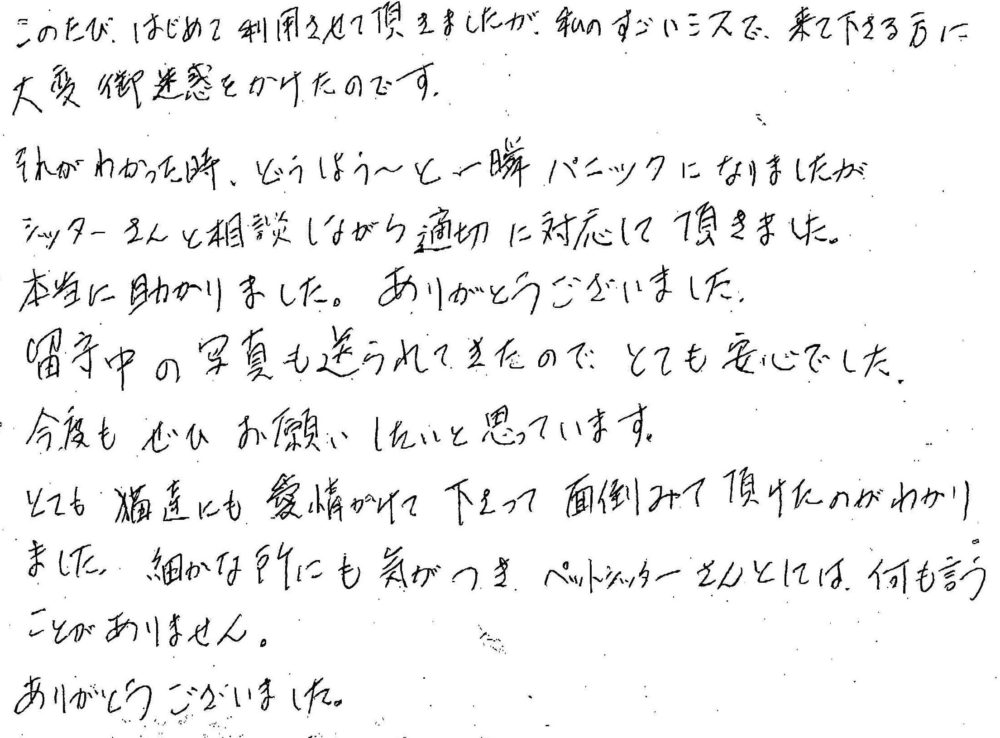 このたび、はじめて利用させて頂きましたが、私のすごいミスで、来て下さる方に
大変御迷惑をかけたのです。
それがわかった時、どうしよう〜と一瞬パニックになりましたが
シッターさんと相談しながら適切に対応して頂きました。
本当に助かりました。ありがとうございました。
留守中の写真も送られてきたので、とても安心でした。
今度もぜひお願いしたいと思っています。
とても猫達にも愛情かけて下さって面倒みて頂けたのがわかり
ました。細かな所にも気がつきペットシッターさんとしては、何も言う
ことがありません。
ありがとうございました。